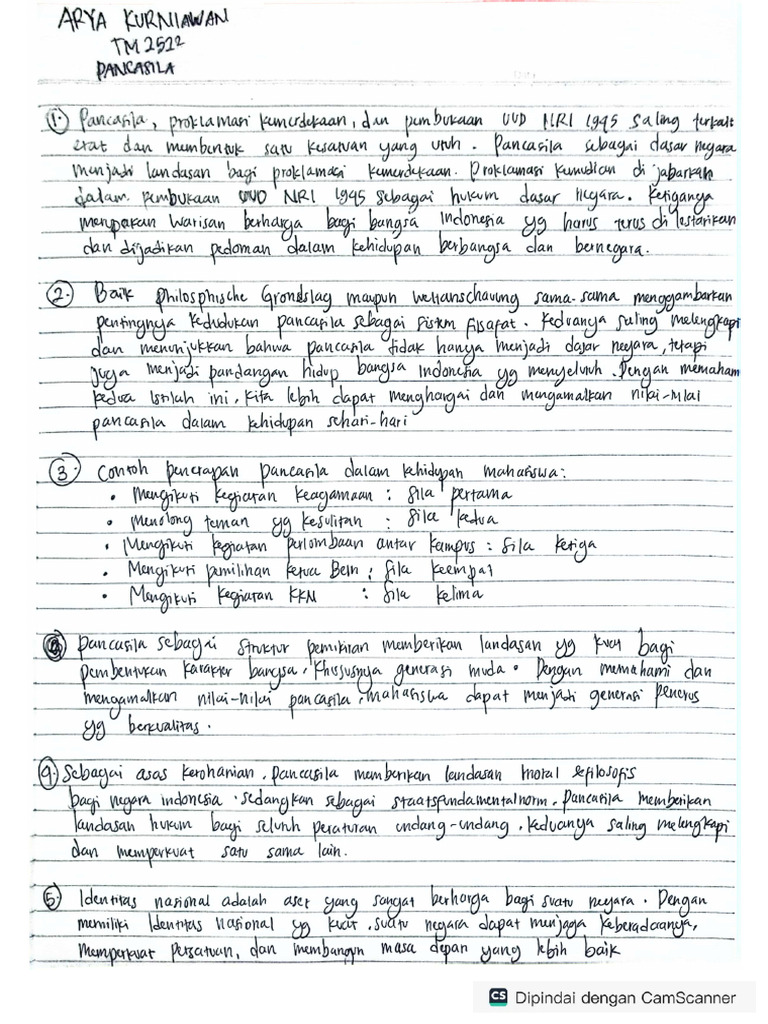 ARYA KURNIAWAN
TM 2522
PANCASILA
1. Pancasila, proklamasi kemerdekaan, dan pembukaan UUD NRI 1945 saling terkait
erat dan membentuk satu kesatuan yang utuh. Pancasila sebagai dasar negara
menjadi landasan bagi proklamasi kemerdekaan. Proklamasi kemudian di jabarkan
dalam pembukaan UUD NRI 1945 sebagai hukum dasar negara. Ketiganya
merupakan warisan berharga bagi bangsa Indonesia yg harus terus di lestarikan
dan dijadikan pedoman dalam kehidupan berbangsa dan bernegara.
2. Baik philosphische Grondslag maupun weltanschauung sama-sama menggambarkan
pentingnya kedudukan pancasila sebagai sistem filsafat. Keduanya saling melengkapi
dan menunjukkan bahwa pancasila tidak hanya menjadi dasar negara, tetapi
juga menjadi pandangan hidup bangsa Indonesia yg menyeluruh. Dengan memaham
kedua istilah ini, kita lebih dapat menghargai dan mengamalkan nilai-nilai
pancasila dalam kehidupan sehari-hari
3. Contoh penerapan pancasila dalam kehidupan mahasiswa:
• Mengikuti kegiatan keagamaan : Sila pertama
• Menolong teman yg kesulitan : Sila kedua
• Mengikuti kegiatan perlombaan antar kampus : Sila ketiga
• Mengikuti pemilihan ketua Bem : Sila keempat
• Mengikuti kegiatan KKN : Sila kelima
Pancasila sebagai struktur pemikiran memberikan landasan yg kuat bagi
pembentukan karakter bangsa, khususnya generasi muda. Dengan memahami dan
mengamalkan nilai-nilai pancasila, mahasiswa dapat menjadi generasi penerus
yg berkualitas.
4. Sebagai asas kerohanian, pancasila memberikan landasan moral & filosofis
bagi negara indonesia. sedangkan sebagai staatsfundamentalnorm, Pancasila memberikan
landasan hukum bagi seluruh peraturan undang-undang. keduanya saling melengkapi
dan memperkuat satu sama lain.
5. Identitas nasional adalah aset yang sangat berharga bagi suatu negara. Dengan
memiliki Identitas Nasional yg kuat, suatu negara dapat menjaga keberadaanya,
memperkuat Persatuan, dan membangun masa depan yang lebih baik
CS Dipindai dengan CamScanner